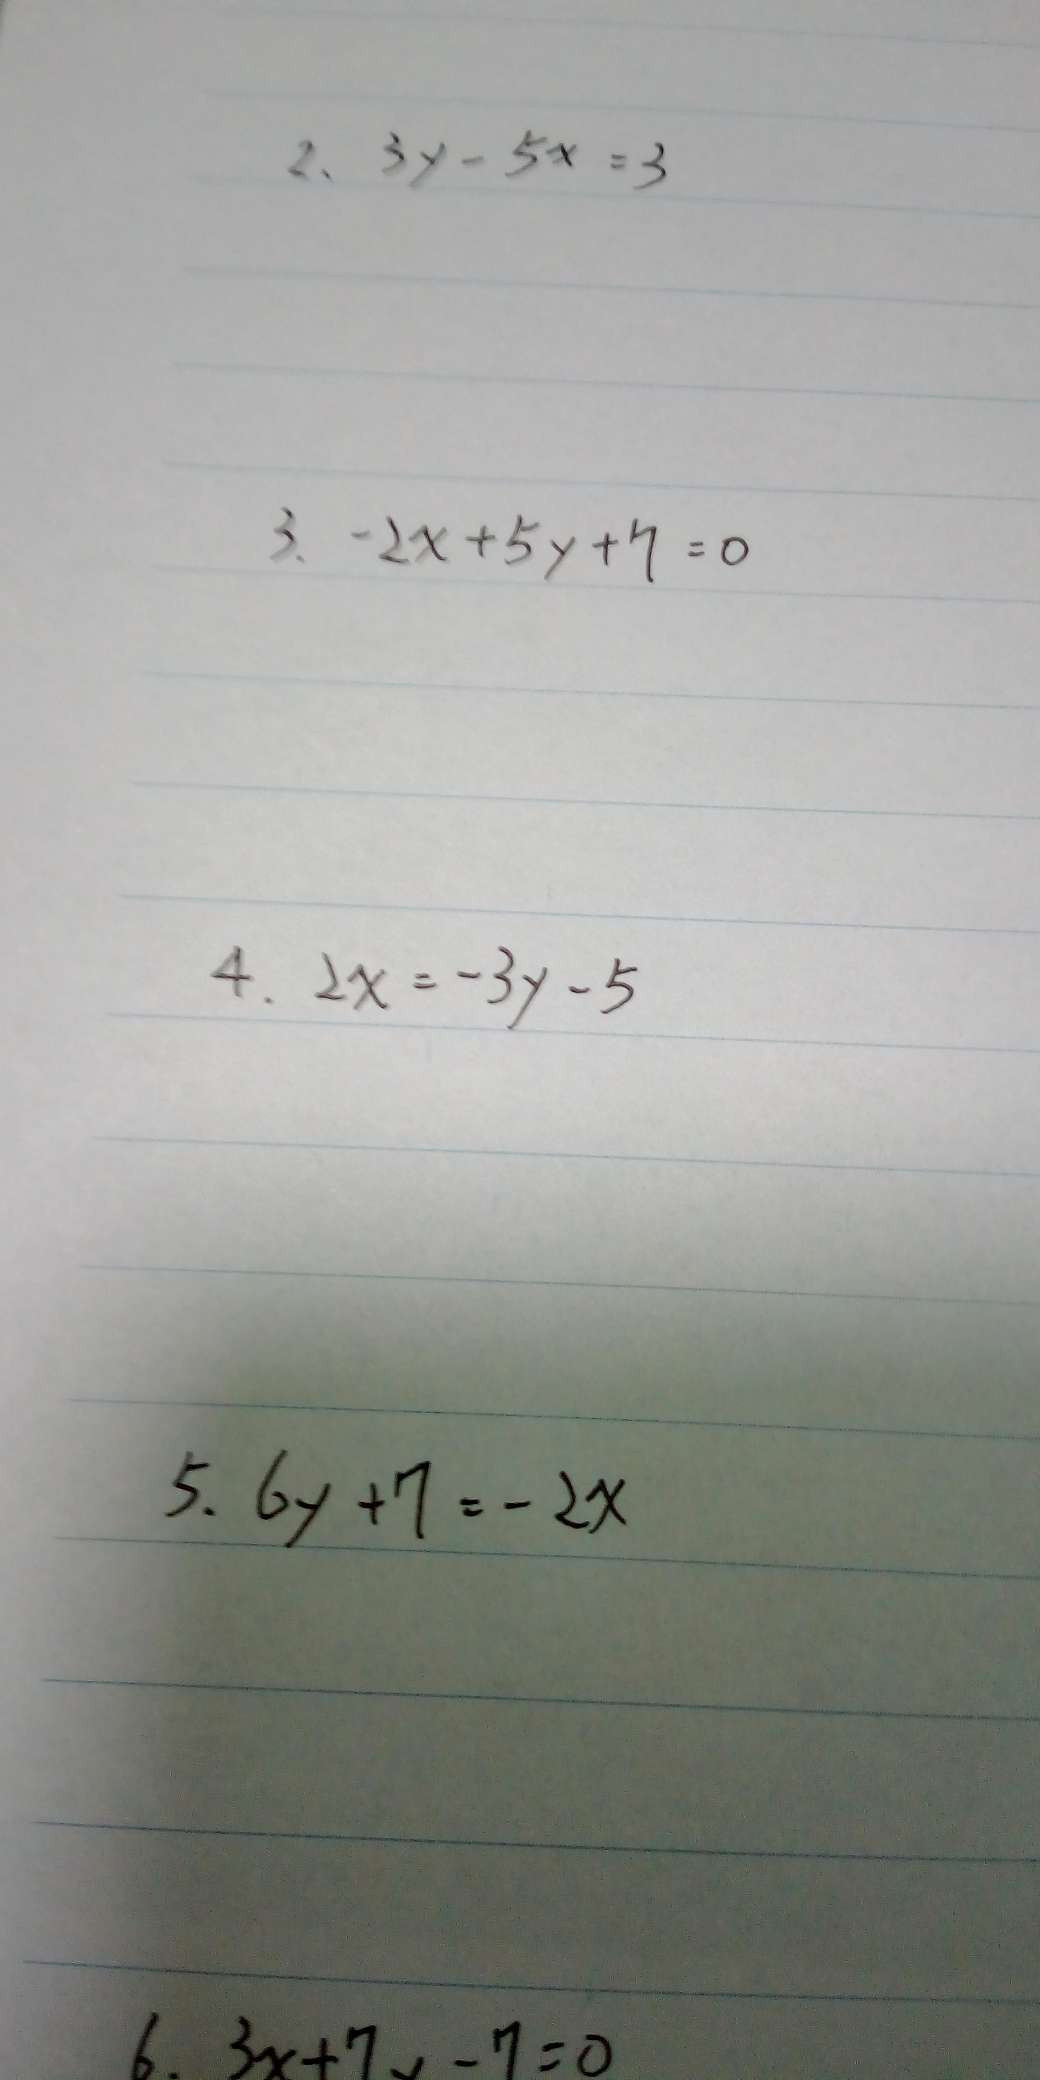 2. 3y - 5x = 3
3. -2x + 5y + 7 = 0
4. 2x = -3y - 5
5. 6y + 7 = - 2x
6. 3x + 7y - 7 = 0